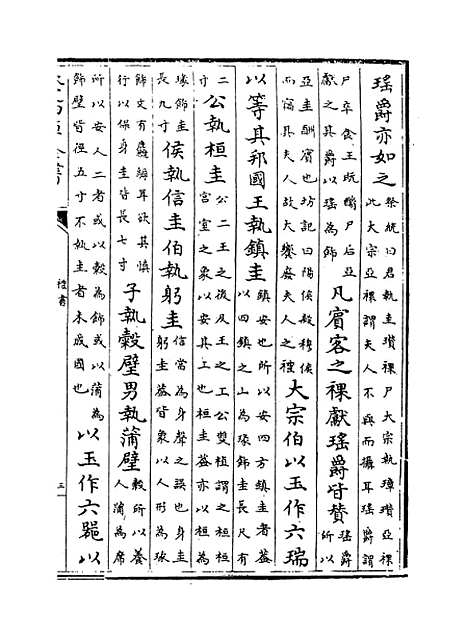 瑤爵亦如之祭統曰君執圭瓚祼尸大宗執璋瓚亞祼
此大宗亞祼謂夫人不與而攝耳瑤爵謂
尸卒食王既酳尸后亞
獻之其爵以瑤為飾凡賓客之祼獻瑤爵皆賛瑤爵
所以
亞王酬賓也坊記曰陽侯殺穆侯
而竊其夫人故大饗廢夫人之禮大宗伯以玉作六瑞
以等其邦國王執鎮圭鎮安也所以安四方鎮圭者葢
以四鎮之山為瑑飾圭長尺有
二
寸公執桓圭公二王之後及王之上公雙植謂之桓桓
宮室之象以安其上也桓圭葢亦以桓為
瑑飾圭
長九寸侯執信圭伯執躬圭信當為身聲之誤也身圭
躬圭葢皆象以人形為瑑
飾文有麤縟耳欲其慎
行以保身圭皆長七寸子執榖璧男執蒲璧榖所以養
人蒲為席
所以安人二者或以榖為飾或以蒲為
飾璧皆徑五寸不執圭者未成國也以玉作六器以
禮書